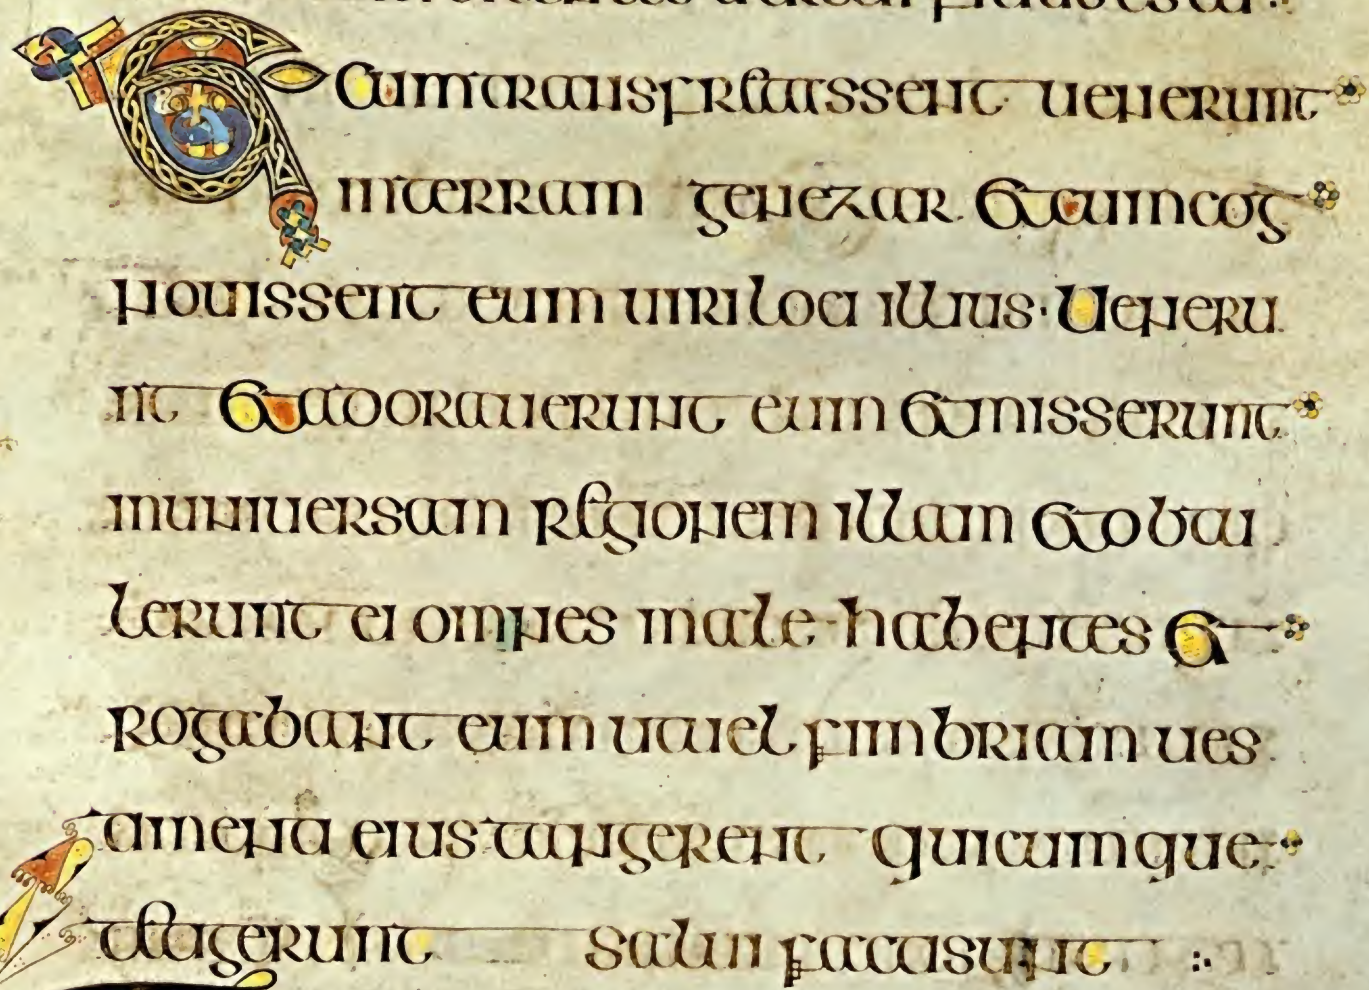 Et cum transfretassent uenerunt
in terram genezar. Et cum cog
nouissent eum uiri loci illius · Ueneru
nt Et adorauerunt eum Et misserunt
in uniuersam regionem illam Et obtu
lerunt ei omnes male habentes Et
rogabant eum ut uel fimbriam ues
amenti eius tangerent quicumque
tetigerunt salui facti sunt :·